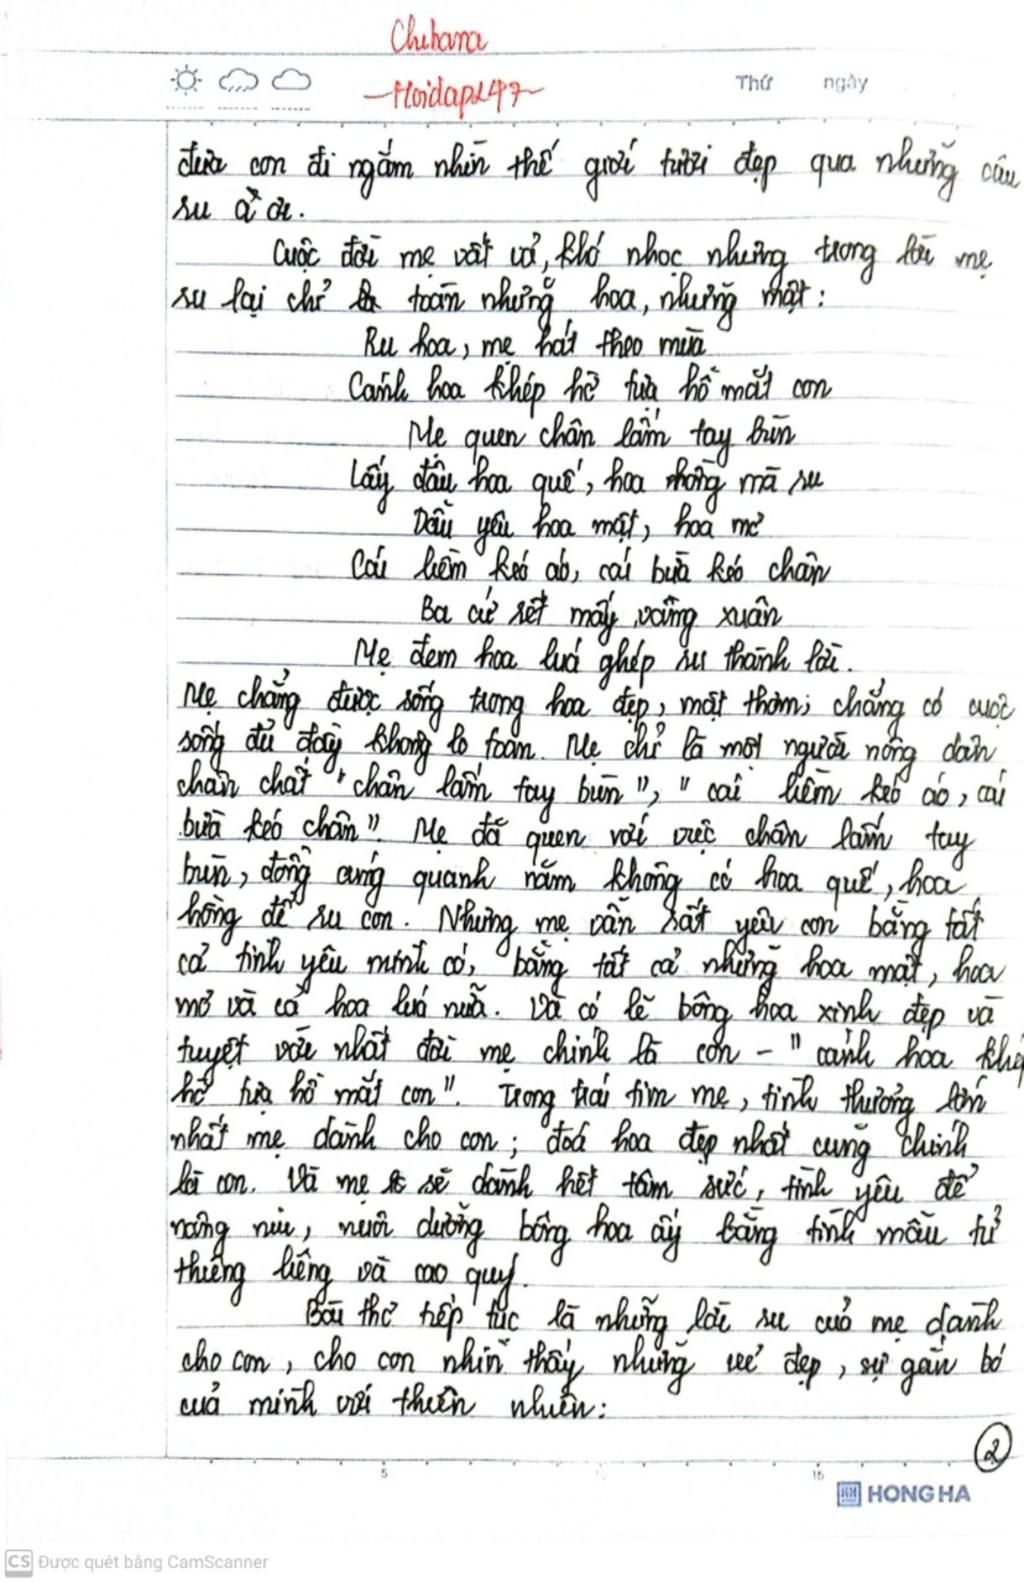 Chibana
Thứ ngày
-Hoidap247-
đưa con đi ngắm nhìn thế giới tươi đẹp qua những câu
ru à ơi.
Cuộc đời mẹ vất vả, khó nhọc nhưng trong lời mẹ
ru lại chỉ toàn những hoa, những mật:
Ru hoa, mẹ hát theo mùa
Cánh hoa khép hờ tựa hồ mắt con
Mẹ quen chân lấm tay bùn
Lấy đâu hoa quế, hoa hồng mà ru
Dẫu yêu hoa mật, hoa mơ
Cái liềm kéo áo, cái bừa kéo chân
Ba cữ rét mấy vầng xuân
Mẹ đem hoa lúa ghép ru thành lời.
Mẹ chẳng được sống trong hoa đẹp, mật thơm; chẳng có cuộc
sống đủ đầy không lo toan. Mẹ chỉ là một người nông dân
chân chất "chân lấm tay bùn", "cái liềm kéo áo, cái
bừa kéo chân". Mẹ đã quen với việc chân lấm tay
bùn, đồng áng quanh năm không có hoa quế, hoa
hồng để ru con. Nhưng mẹ vẫn rất yêu con bằng tất
cả tình yêu mình có, bằng tất cả những hoa mật, hoa
mơ và cả hoa lúa nữa. Và có lẽ bông hoa xinh đẹp và
tuyệt vời nhất đời mẹ chính là con - "cánh hoa khép
hờ tựa hồ mắt con". Trong trái tim mẹ, tình thương lớn
nhất mẹ dành cho con; đoá hoa đẹp nhất cũng chính
là con. Và mẹ sẽ dành hết tâm sức, tình yêu để
nâng niu, nuôi dưỡng bông hoa ấy bằng tình mẫu tử
thiêng liêng và cao quý.
Bài thơ tiếp tục là những lời ru của mẹ dành
cho con, cho con nhìn thấy những vẻ đẹp, sự gắn bó
của mình với thiên nhiên:
2
5 10 15
HONG HA
CS Được quét bằng CamScanner